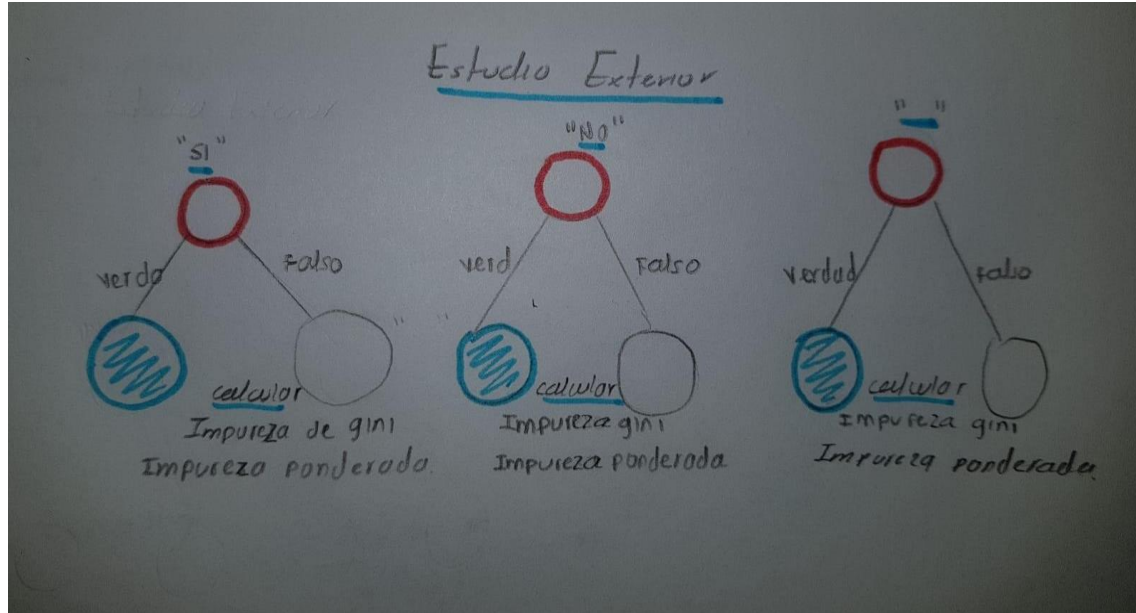 Estudio Exterior
"SI"
verda
Falso
calcular
Impureza de gini
Impureza ponderada.
"NO"
verd
Falso
calcular
Impureza gini
Impureza ponderada
" "
verdad
falso
calcular
Impureza gini
Impureza ponderada.